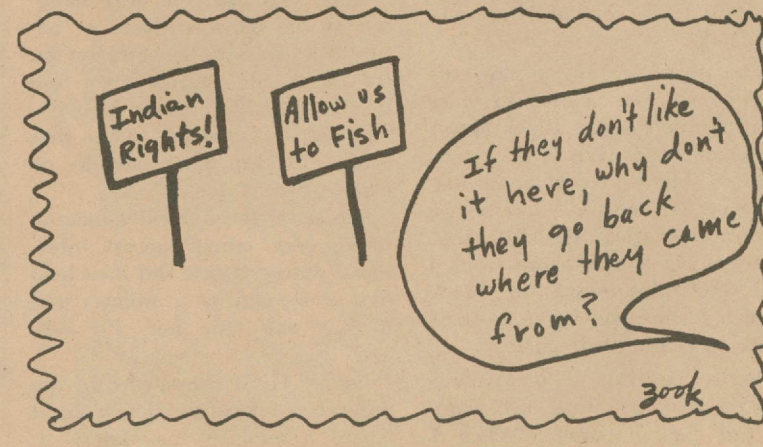 Indian
Rights!
Allow us
to Fish
If they don't like
it here, why don't
they go back
where they came
from?
zook